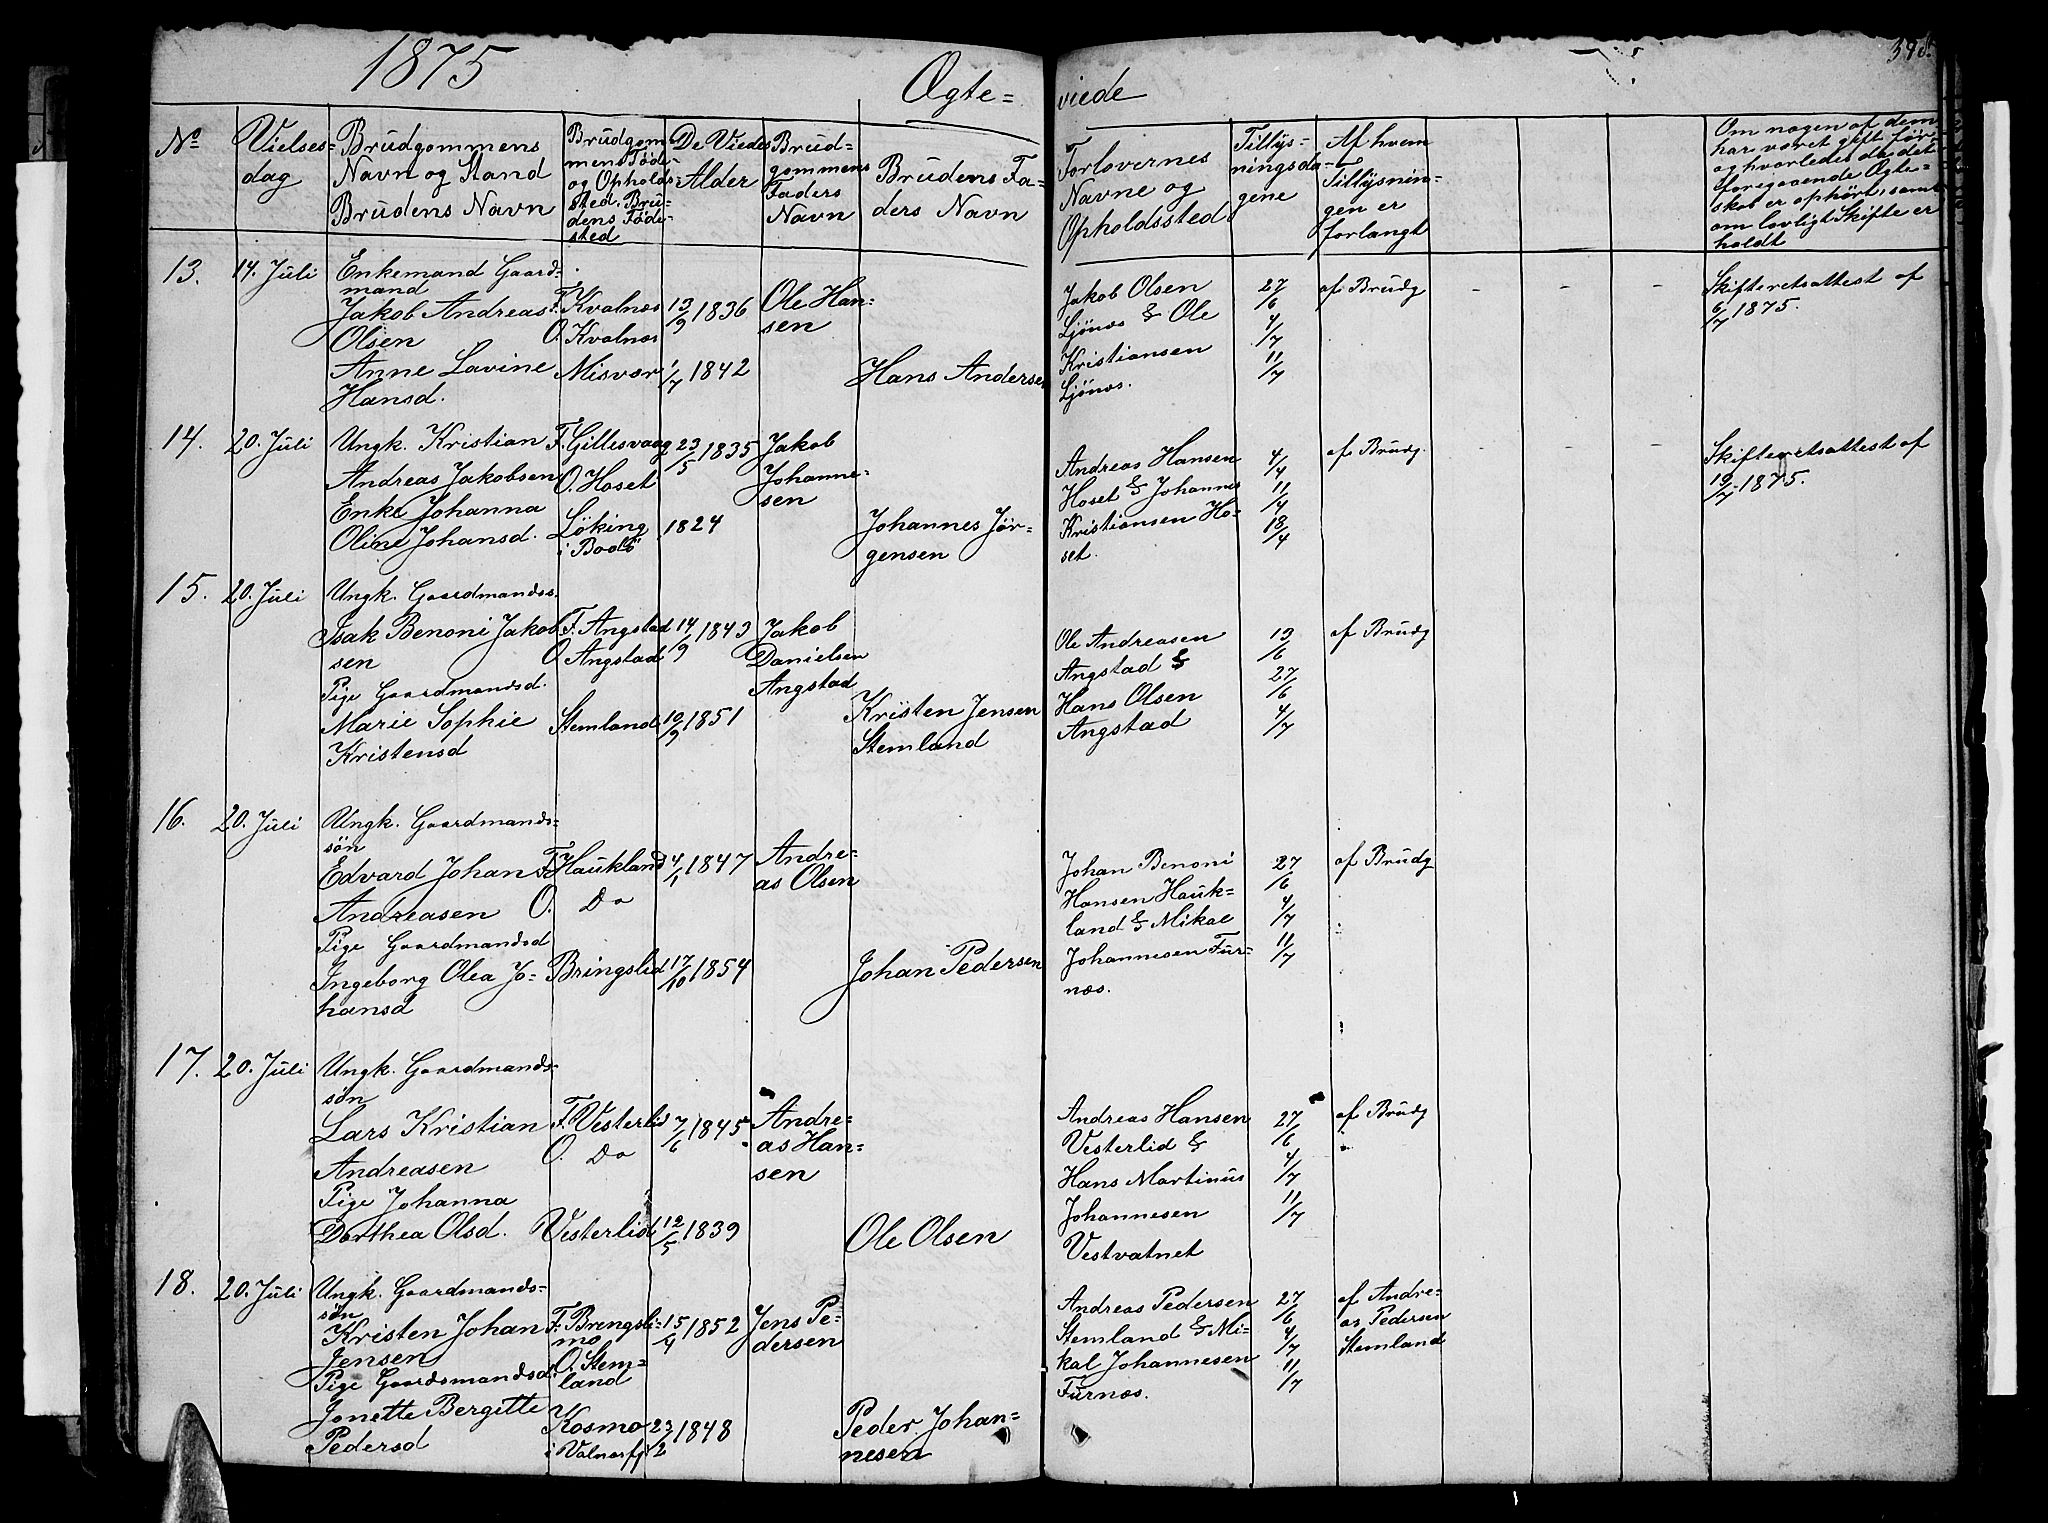 1875
Ægte= viede
No
Vielses=
dag
Brudgommens
Navn og Stand
Brudens Navn
Brudgom
mens Føde-
og Opholds-
sted. Bru-
dens Føde-
sted
De Viedes
Alder
Brud=
gommens
Faders
Navn
Brudens Fa=
ders Navn
Forlovernes
Navne og
Opholdssted
Tillys=
ningsda=
gene
Af hvem
Tillysnin=
gen er
forlangt
Om nogen af dem
har været gift før
og hvorledes da det
foregaaende Ægte=
skab er ophørt, samt
om lovligt Skifte er
holdt
13.
14. Juli
Enkemand Gaard=
mand
Jakob Andreas
Olsen
Anne Lavine
Hansd.
F. Kvalnæs
O. Kvalnæs
Misvær
13/9 1836
1/7 1842
Ole Han=
sen
Hans Andersen
Jakob Olsen
Ljønæs & Ole
Kristiansen
Ljønæs.
27/6
4/7
11/7
af Brudg
- - -
Skifteretsattest af
6/7 1875.
14.
20. Juli
Ungk. Kristian
Andreas Jakobsen
Enke Johanna
Oline Johansd.
F. Gillesvaag
O. Hoset
Løking
i Bodø
23/5 1835
1824
Jakob
Johanne=
sen
Johannes Jør=
gensen
Andreas Hansen
Hoset & Johannes
Kristiansen Ho=
set.
4/4
11/4
18/4
af Brudg.
- - -
Skifteretsattest af
19/7 1875.
15.
20. Juli
Ungk. Gaardmandss.
Isak Benoni Jakob
sen
Pige Gaardmandsd.
Marie Sophie
Kristensd
F. Angstad
O. Angstad
Stemland
14/9 1843
10/9 1851
Jakob
Danielsen
Angstad
Kristen Jensen
Stemland
Ole Andreasen
Angstad &
Hans Olsen
Angstad
13/6
27/6
4/7
af Brudg
16.
20. Juli
Ungk. Gaardmands=
søn
Edvard Johan
Andreasen
Pige Gaardmandsd
Ingeborg Olea Jo=
hansd
F. Haukland
O. Do
Bringslid
4/1 1847
17/10 1854
Andre=
as Olsen
Johan Pedersen
Johan Benoni
Hansen Hauk=
land & Mikal
Johannesen Fur=
næs.
27/6
4/7
11/7
af Brudg
17.
20. Juli
Ungk. Gaardmands=
søn
Lars Kristian
Andreasen
Pige Johanna
Dorthea Olsd.
F. Vesterlid
O. Do
Vesterlid
7/6 1845
12/5 1839
Andre=
as Han=
sen
Ole Olsen
Andreas Hansen
Vesterlid &
Hans Martinus
Johannesen
Vestvatnet
27/6
4/7
11/7
af Brudg
18.
20. Juli
Ungk. Gaardmands=
søn
Kristen Johan
Jensen
Pige Gaardsmandsd.
Jonette Bergitte
Pedersd
F. Bringsli=
mo
O. Stem=
land
Kosmo
i Valnærfj
15/4 1852
23/2 1848
Jens Pe=
dersen
Peder Johan=
nesen
Andreas Pedersen
Stemland & Mi=
kal Johannesen
Furnæs.
27/6
4/7
11/7
af Andre=
as Pedersen
Stemland